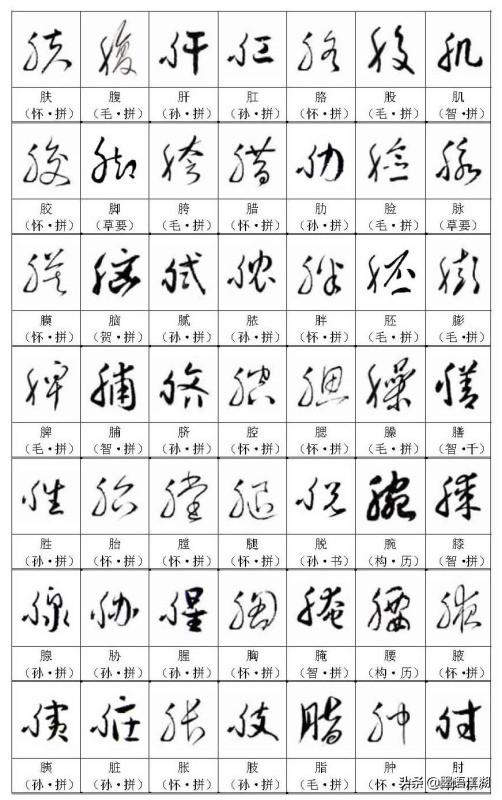 肤 腹 肝 肛 胳 股 肌
(怀·拼) (毛·拼) (孙·拼) (孙·拼) (怀·拼) (毛·拼) (智·拼)
胶 脚 胯 腊 肋 脸 脉
(怀·拼) (草要) (毛·拼) (怀·拼) (孙·拼) (毛·拼) (草要)
膜 脑 腻 脓 胖 胚 膨
(怀·拼) (贺·拼) (孙·拼) (孙·拼) (怀·拼) (毛·拼) (毛·拼)
脾 脯 脐 腔 腮 臊 膳
(毛·拼) (智·拼) (孙·拼) (怀·拼) (怀·拼) (毛·拼) (智·千)
胜 胎 膛 腿 脱 腕 膝
(孙·拼) (怀·拼) (怀·拼) (怀·拼) (孙·书) (构·历) (智·拼)
腺 胁 腥 胸 腌 腰 腋
(孙·拼) (孙·拼) (孙·拼) (怀·拼) (智·拼) (构·历) (怀·拼)
胰 脏 胀 肢 脂 肿 肘
(孙·拼) (孙·拼) (怀·拼) (孙·拼) (毛·拼) (怀·拼)
头条 @翠语江湖